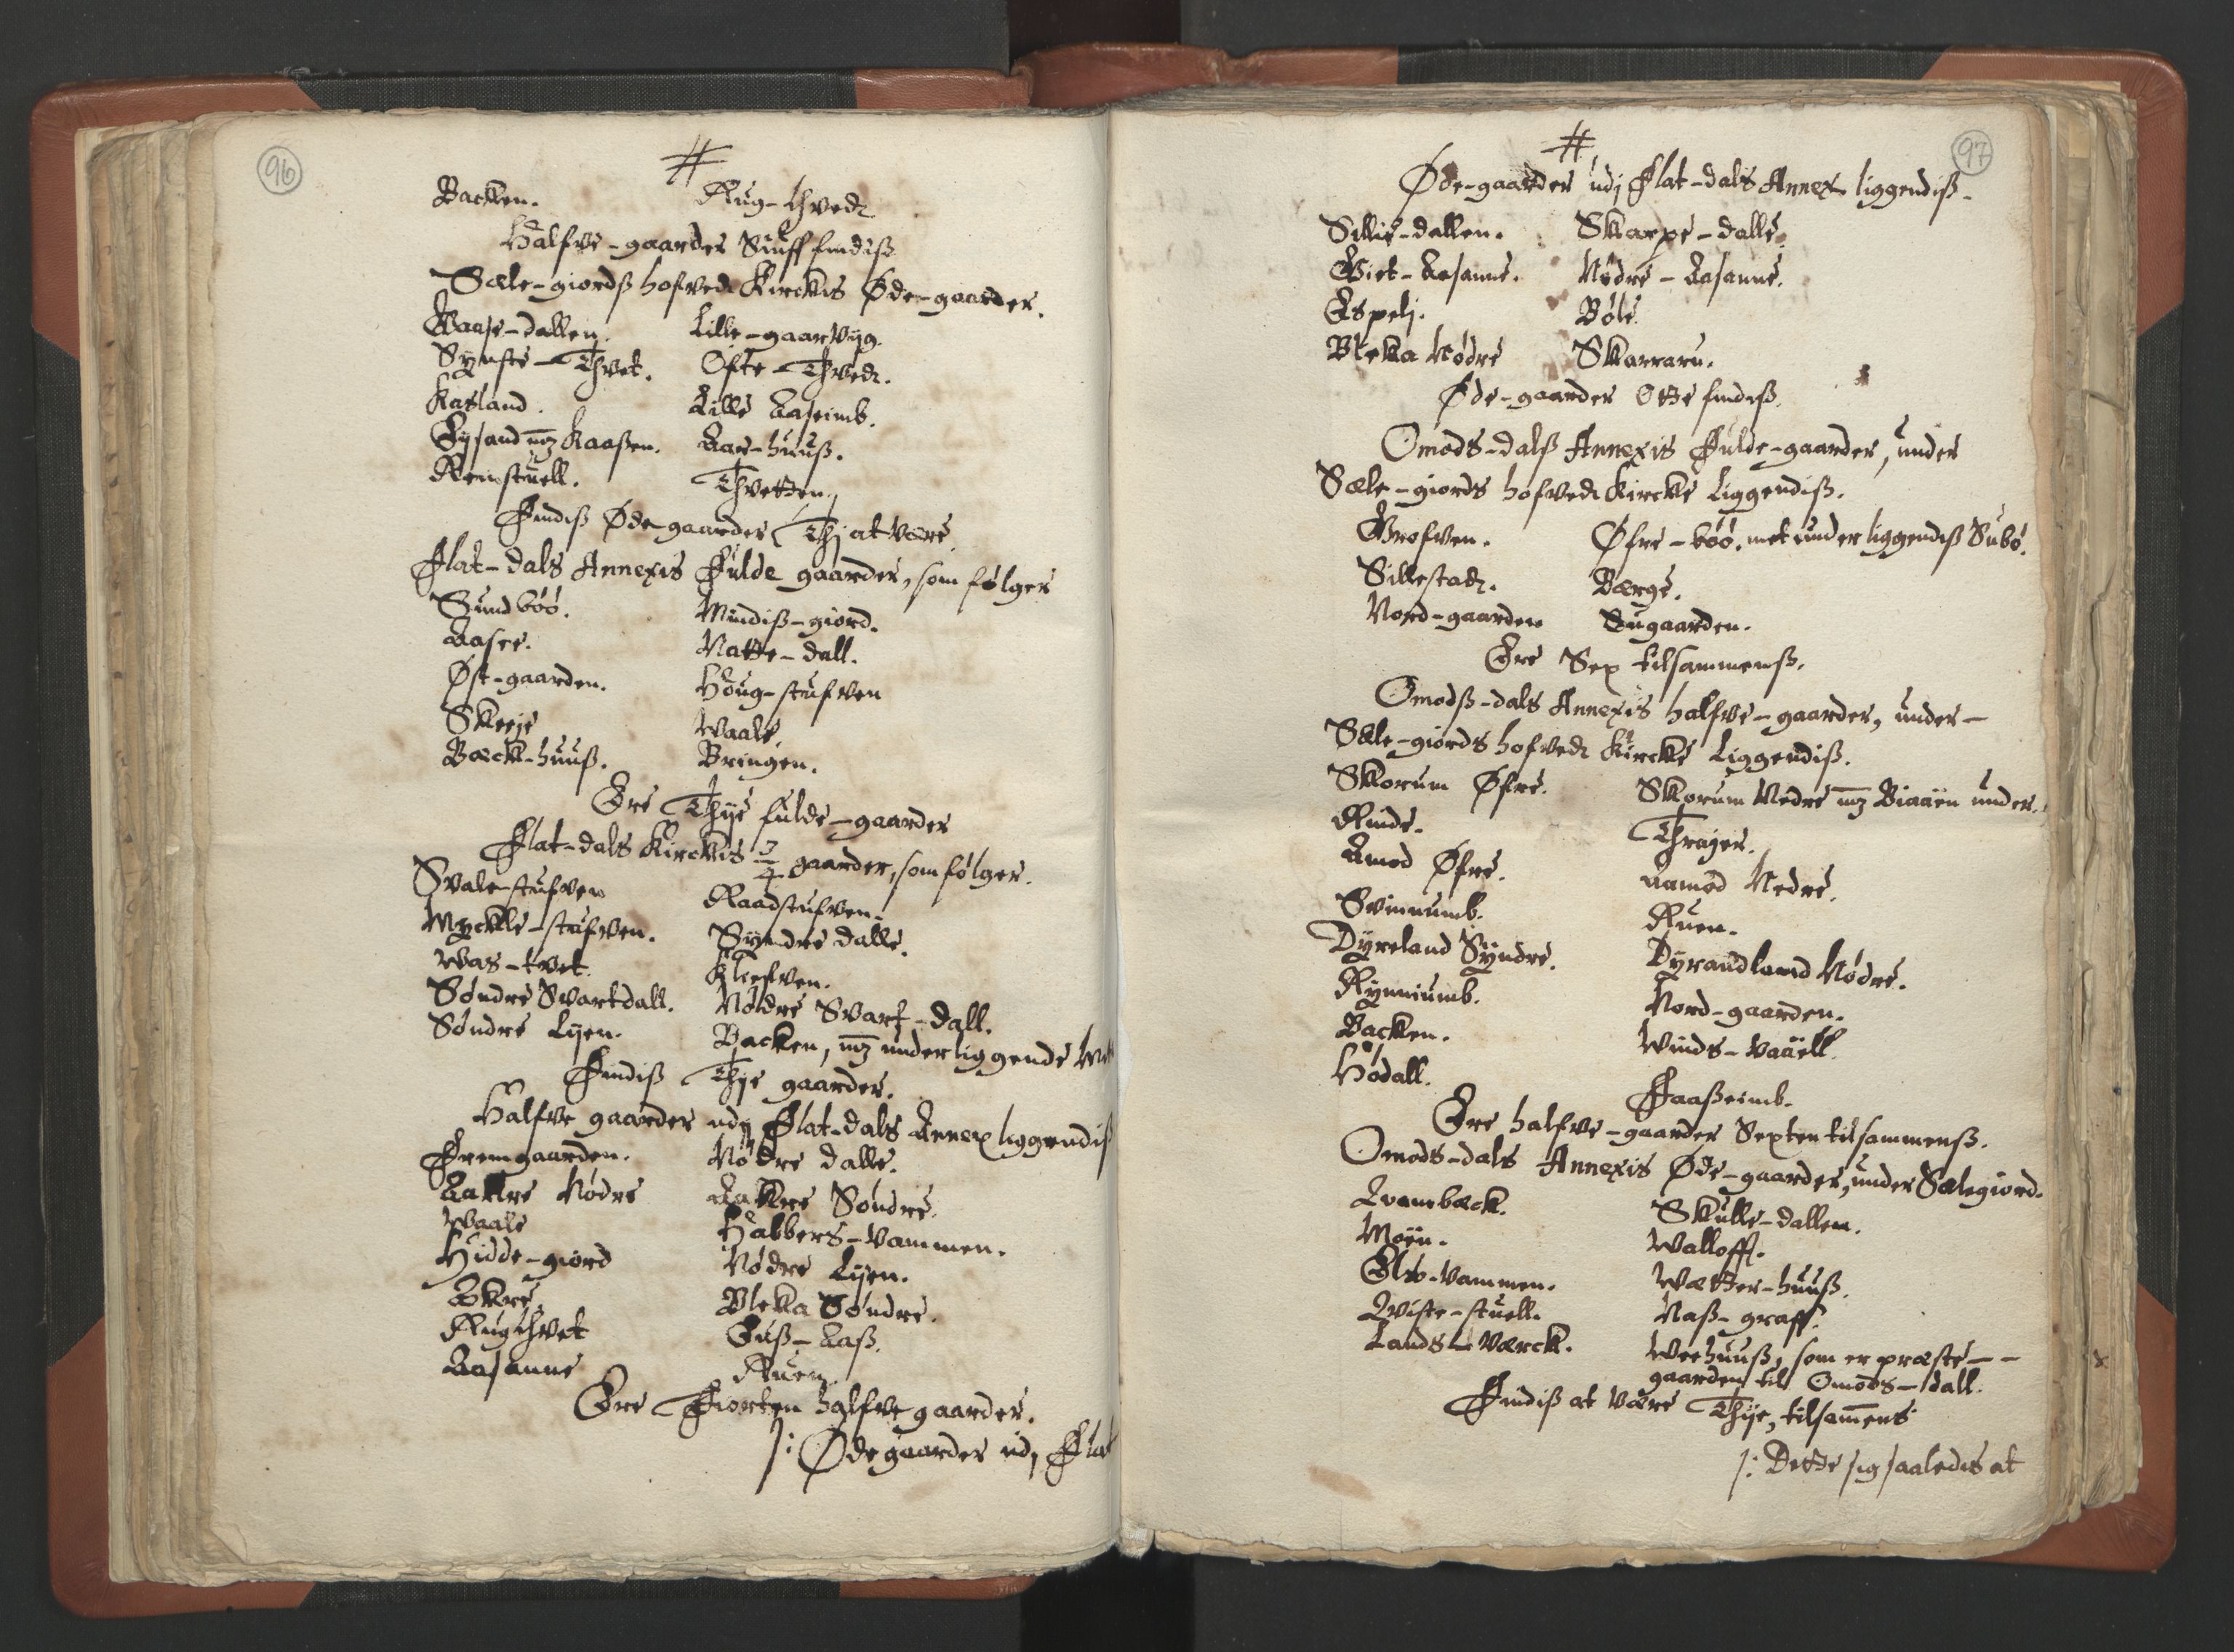 96
#
Backen. Rug-thved
Halfve-gaarder Siuff findiß
Sæle-giordß hofved Kirckis Øde-gaarder.
Waase-dallen. Lille-gaarvyg.
Synste-Thvet. Ofte-Thved.
Kasland. Lille Aaseimb.
Lysand mz Kaaßen. Aar-huuß.
Reinstuell. Thvetten.
Findiß Øde gaarder Thj at være
Flat-dals Annexis Fulde gaarder, som følger
Sundbøø. Mindiß-giord.
Aasee. Natte-dall.
Øst-gaarden. Houg-stufven
Skeeje Waale.
Bæck-huuß. Bringen.
Ere Thye fulde-gaarder
Flat-dals Kirckis 3/4 gaarder, som følger.
Svale-stufven Raadstufven.
Myckle-stufven. Syndre dalle.
Was-tvet. Kleefven.
Søndre Svartdall. Nødre Svart-dall.
Søndre Lyen. Backen, mz underliggende
Findiß Thje gaarder.
Halfve gaarder udj Flat-dals Annex liggendiß
Fremgaarden. Nødre dalle.
Aakre Nødre Aakre Søndre.
Waale Habbers-vammen.
Hidde-giord Nødre Lyen.
Ekre Bleka Søndre.
Rugthvet Luß-Aaß.
Aasanne Ruen.
Ere Fiorten halfve gaarder.
/: Øde gaarder udj Flat
97
#
Øde-gaarder udj Flat-dals Annex liggendiß-
Sillie-dallen. Skarpe-dalle.
Viet-Aasanne. Nødre-Aasanne.
Espelj. Bøle.
Bleka Nødre Skarraru.
Øde-gaarder Otte findiß.
Omods-dalß Annexis Fulde-gaarder, under
Sæle-giords hofved Kircke Liggendiß.
Grofven. Øfre-bøø, met under liggendiß Subø.
Sillestad. Bærge.
Nord-gaarden Sugaarden.
Ere Sex tilsammenß.
Omodß-dals Annexis halfve-gaarder, under-
Sæle-giords hofved Kircke Liggendiß.
Skorum Øfre. Skorum Nedre mz Biaaen under.
Rinde. Thrajer.
Amod Øfre. Aamod Nedre.
Svinnumb. Ruen.
Dyreland Syndre. Dyrandland Nødre.
Rynniumb. Nord-gaarden.
Backen. Winds-Vaaell.
Hødall. Faaßeimb.
Ere halfve-gaarder Sexten tilsammenß.
Omods-dals Annexis Øde-gaarder, under Sælegiord.
Qvambæck. Skulle-dallen.
Moen. Walloff.
Elv-vammen. Wætter-huuß.
Qviste-stuell. Naß-graff.
Lands-værck. Weehuuß, som er præste--
gaarden til Omods-dall.
Findiß at være Thije, tilsamens
/: Dette sig saaledis at